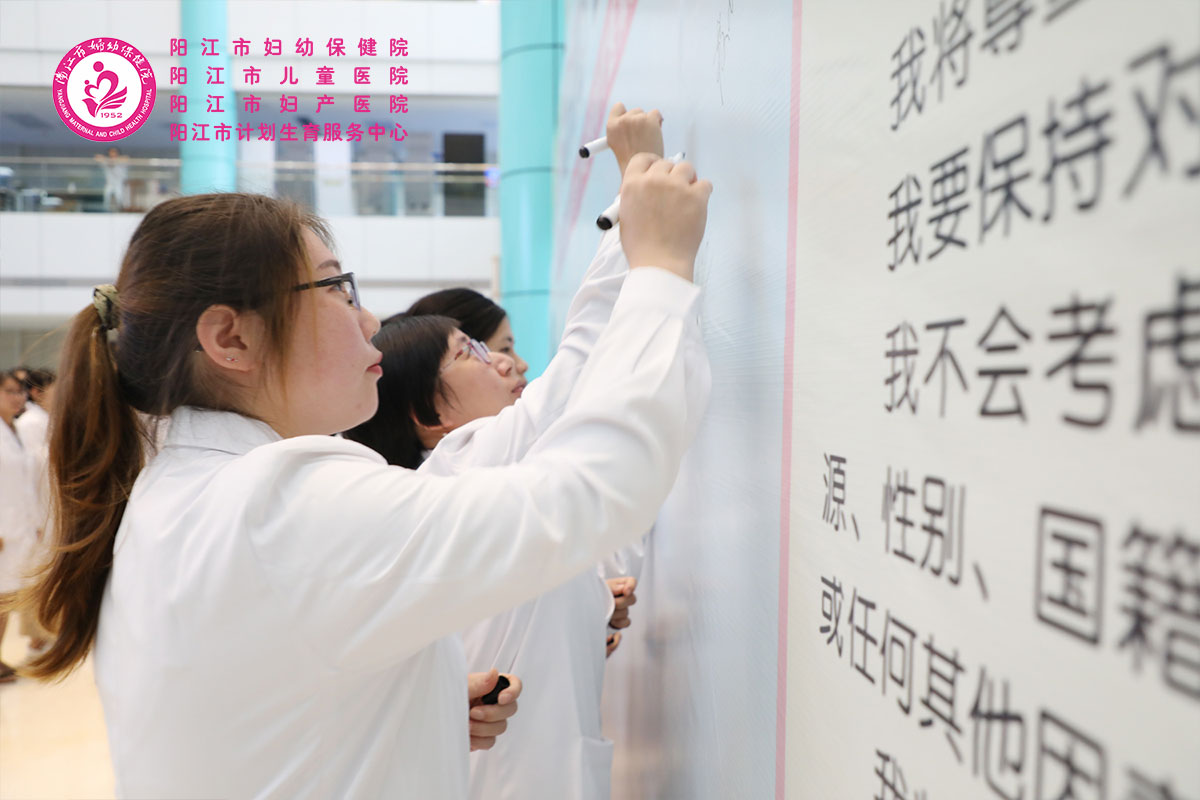 阳江市妇幼保健院
阳江市儿童医院
阳江市妇产医院
阳江市计划生育服务中心
阳江市妇幼保健院
YANGJIANG MATERNAL AND CHILD HEALTH HOSPITAL
1952
我将尊
我要保持对
我不会考虑
源、性别、国籍
或任何其他因
我